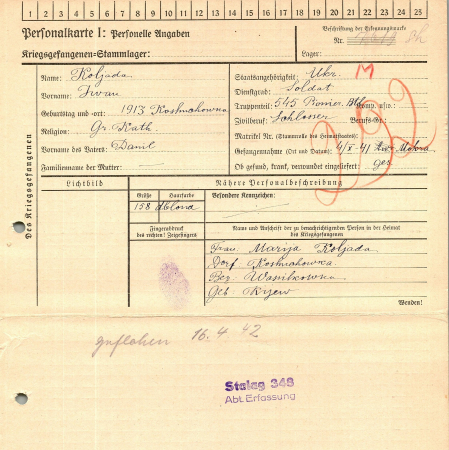 1 2 3 4 5 6 7 8 9 10 11 12 13 14 15 16 17 18 19 20 21 22 23 24 25
Personalkarte I: Personelle Angaben
Kriegsgefangenen-Stammlager:
Beschriftung der Erkennungsmarke
Nr.
Lager:
Des Kriegsgefangenen
Name: Koljada
Vorname: Iwan
Geburtstag und -ort: 1913 Kosmahowka
Religion: Gr. Kath.
Vorname des Vaters: Danil
Familienname der Mutter:
Staatsangehörigkeit: Ukr. M
Dienstgrad: Soldat
Truppenteil: 545 Pionier. Btl. Komp. usw.:
Zivilberuf: Schlosser Berufs-Gr.:
Matrikel Nr. (Stammrolle des Heimatstaates):
Gefangennahme (Ort und Datum): 4/X 41
Ob gesund, krank, verwundet eingeliefert: ges
Lichtbild
Nähere Personalbeschreibung
Größe
Haarfarbe
Besondere Kennzeichen:
158 dblond
Fingerabdruck
des rechten! Zeigefingers
Name und Anschrift der zu benachrichtigenden Person in der Heimat
des Kriegsgefangenen
Frau. Marija Koljada
Dorf. Kosmahowka
Bez. Wasilkowna
Geb. Kijew
Wenden!
geflohen 16.4.42
Stalag 348
Abt. Erfassung